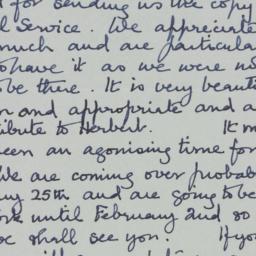 for sending us the copy
l Service. We appreciate
much and are particula
o have it as we were no
be there. It is very beauti
n and appropriate and a
ibute to Herbert. It m
een an agonising time for
We are coming over probab
ry 25th and are going to be
until February 2nd so
e shall see you. If yo